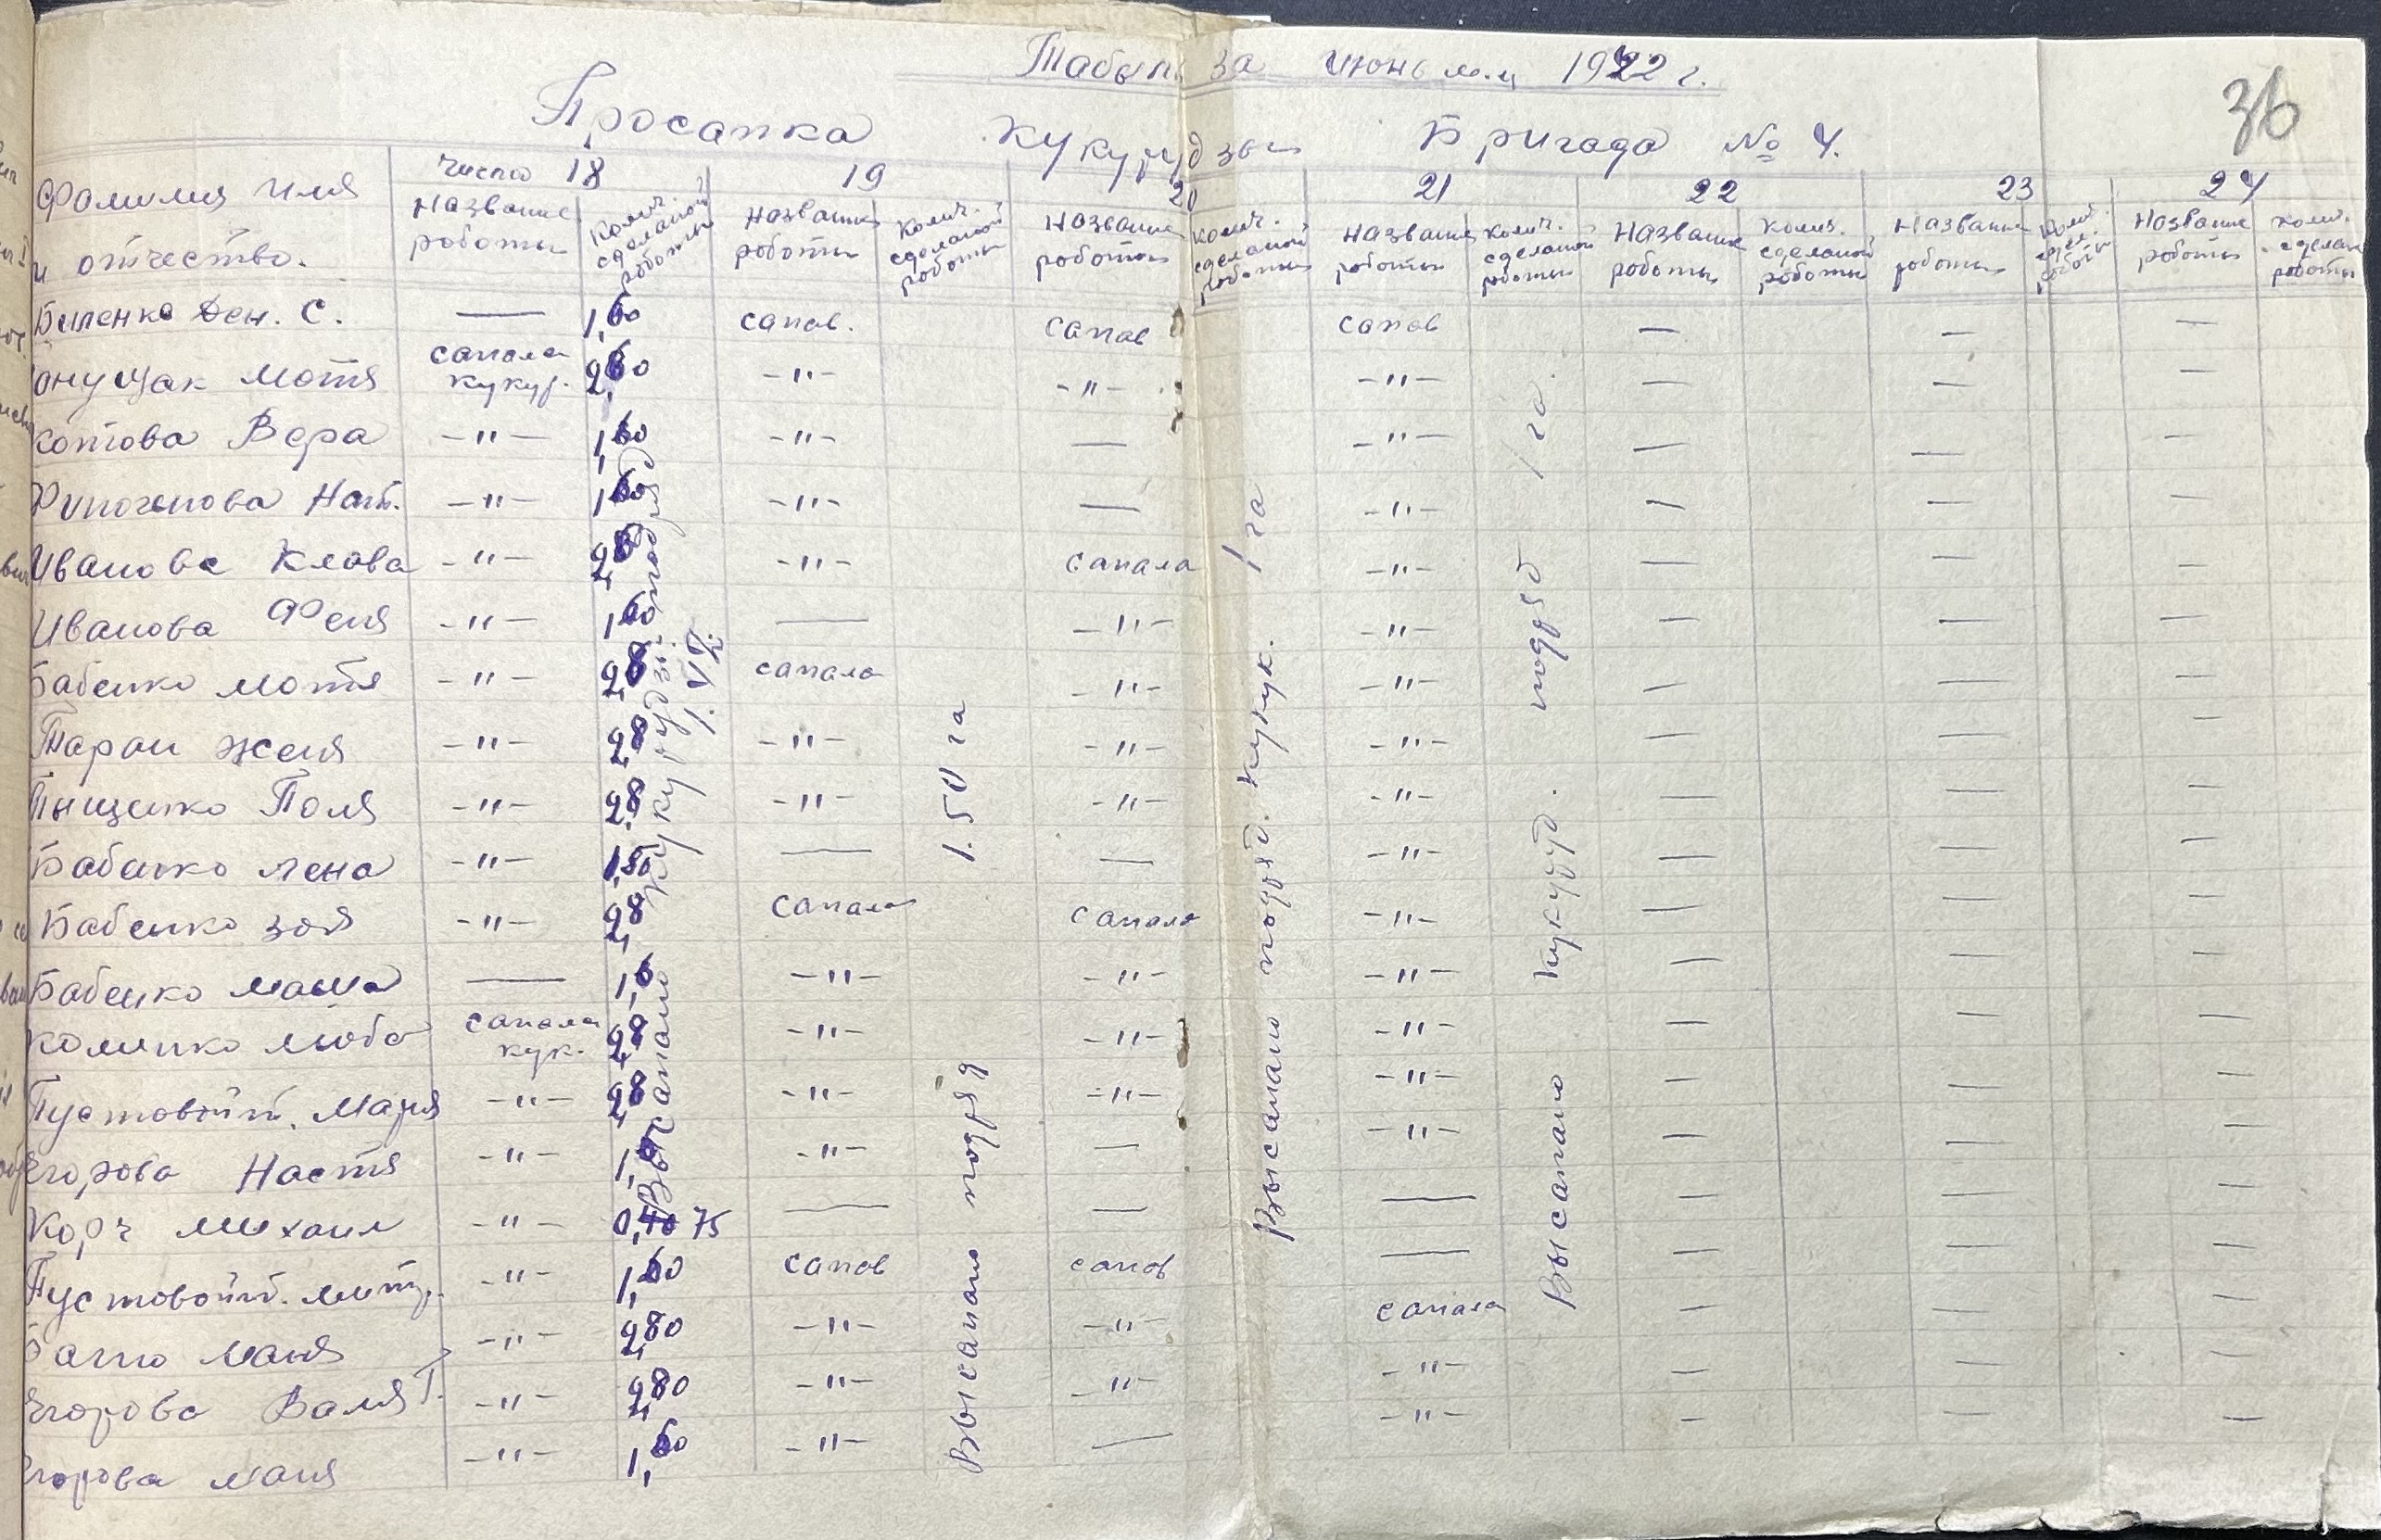 Табель за июнь м-ц 1942 г.
36
Просапка кукурудзы Бригада № 4.
Фамилия имя и отчество. Число 18 19 20 21 22 23 24
Название роботы Колич. сделаной роботы Название роботы Колич. сделаной роботы Название роботы Колич. сделаной роботы Название роботы Колич. сделаной роботы Название роботы Колич. сделаной роботы Название роботы Колич. сдел. роботы Название роботы Колич. сделан роботы
Биленко Ден. С. — 1,60 сапов. сапов сапов — — —
Онущак Мотя сапала кукур. 2,80 -"- -"- -"- — — —
Котова Вера -"- 1,60 -"- — -"- — — —
Филогенова Нат. -"- 1,60 -"- — -"- — — —
Иванова Клава -"- 2,8 -"- сапала -"- — — —
Иванова Феня -"- 1,60 — -"- -"- — — —
Бабенко Мотя -"- 2,8 сапала -"- -"- — — —
Таран Женя -"- 2,8 -"- -"- -"- — — —
Тыщенко Поля -"- 2,8 -"- -"- -"- — — —
Бабенко Лена -"- 1,80 — — -"- — — —
Бабенко Зоя -"- 2,8 сапала сапала -"- — — —
Бабенко Маша — 1,6 -"- -"- -"- — — —
Коменко Люба сапала кук. 2,8 -"- -"- -"- — — —
Пустовойт. Мария -"- 2,8 -"- -"- -"- — — —
Егорова Настя -"- -"- — -"- — — —
Корч Михаил -"- 0,40 75 — — — — — —
Пустовойт. Митр. -"- 1,60 сапов сапов — — — —
Маня -"- 2,80 -"- -"- сапала — — —
Егорова Валя Т. -"- 2,80 -"- -"- -"- — — —
Егорова Маня -"- 1,60 -"- — -"- — — —
Высапано кукурудзы подряд
1. га
Высапано подряд 1.50 га
Высапано подряд. кукук. 1 га
Высапано кукуруд. подряд 1 га.